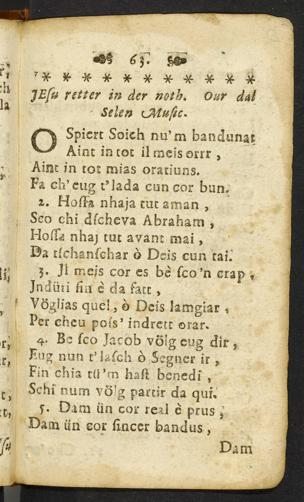 63.
* * * * * * * * * * * *
JEſu retter in der noth. Our dal
Selen Muſic.
O Spiert Soich nu'm bandunat
Aint in tot il meis orrr ,
Aint in tot mias oratiuns.
Fa ch'eug t'lada cun cor bun.
2. Hoſſa nhaja tut aman ,
Sco chi dſcheva Abraham ,
Hoſſa nhaj tut avant mai ,
Da tſchanſchar ò Deis cun tai.
3. Jl meis cor es bè ſco'n crap ,
Jndüti ſin è da fatt ,
Vöglias quel, ò Deis lamgiar ,
Per cheu poſs' indrett orar.
4. Be ſco Jacòb völg eug dir ,
Eug nun t'laſch ò Segner ir ,
Fin chia tü'm haſt benedi ,
Schi num völg partir da qui.
5. Dam ün cor real è prus ,
Dam ün cor ſincer bandus ,
Dam